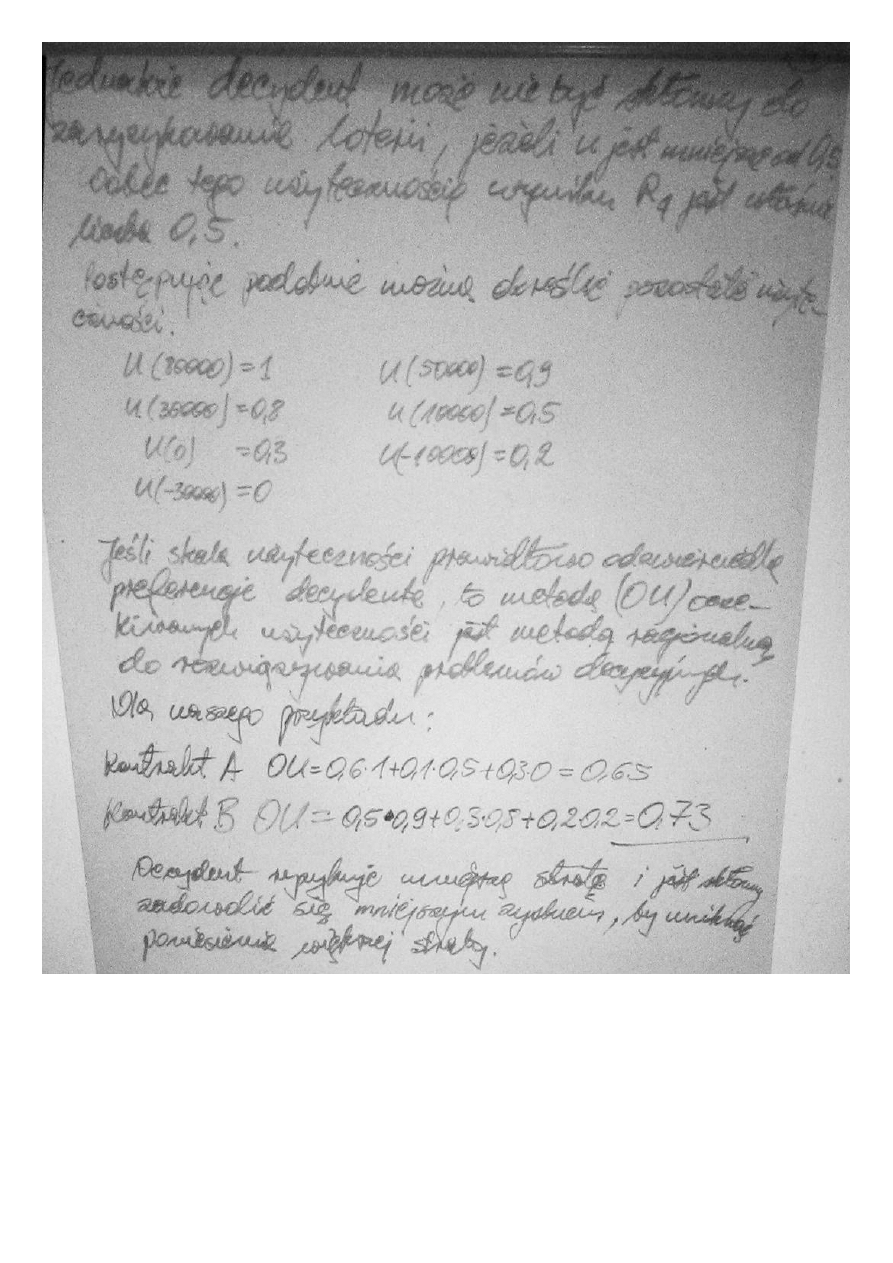 Jednakże decydent może nie być skłonny do
zaryzykowania loterii, jeżeli u jest mniejsze od 0,5
Wobec tego użytecznością wyniku R1 jest właśnie
liczba 0,5.
Postępując podobnie można określić pozostałe użyte-
czności.
U(80000)=1 U(50000)=0,9
U(30000)=0,8 U(10000)=0,5
U(0) =0,3 U(-10000)=0,2
U(-30000)=0
Jeśli skala użyteczności prawidłowo odzwierciedla
preferencje decydenta, to metoda (OU) ocze-
kiwanych użyteczności jest metodą racjonalną
do rozwiązywania problemów decyzyjnych.
Dla naszego przykładu:
Kontrakt A OU=0,6·1+0,1·0,5+0,3·0=0,65
Kontrakt B OU=0,5·0,9+0,3·0,8+0,2·0,2=0,73
Decydent ryzykuje mniejszą stratę i jest skłonny
zadowolić się mniejszym zyskiem, by uniknąć
poniesienia większej straty.